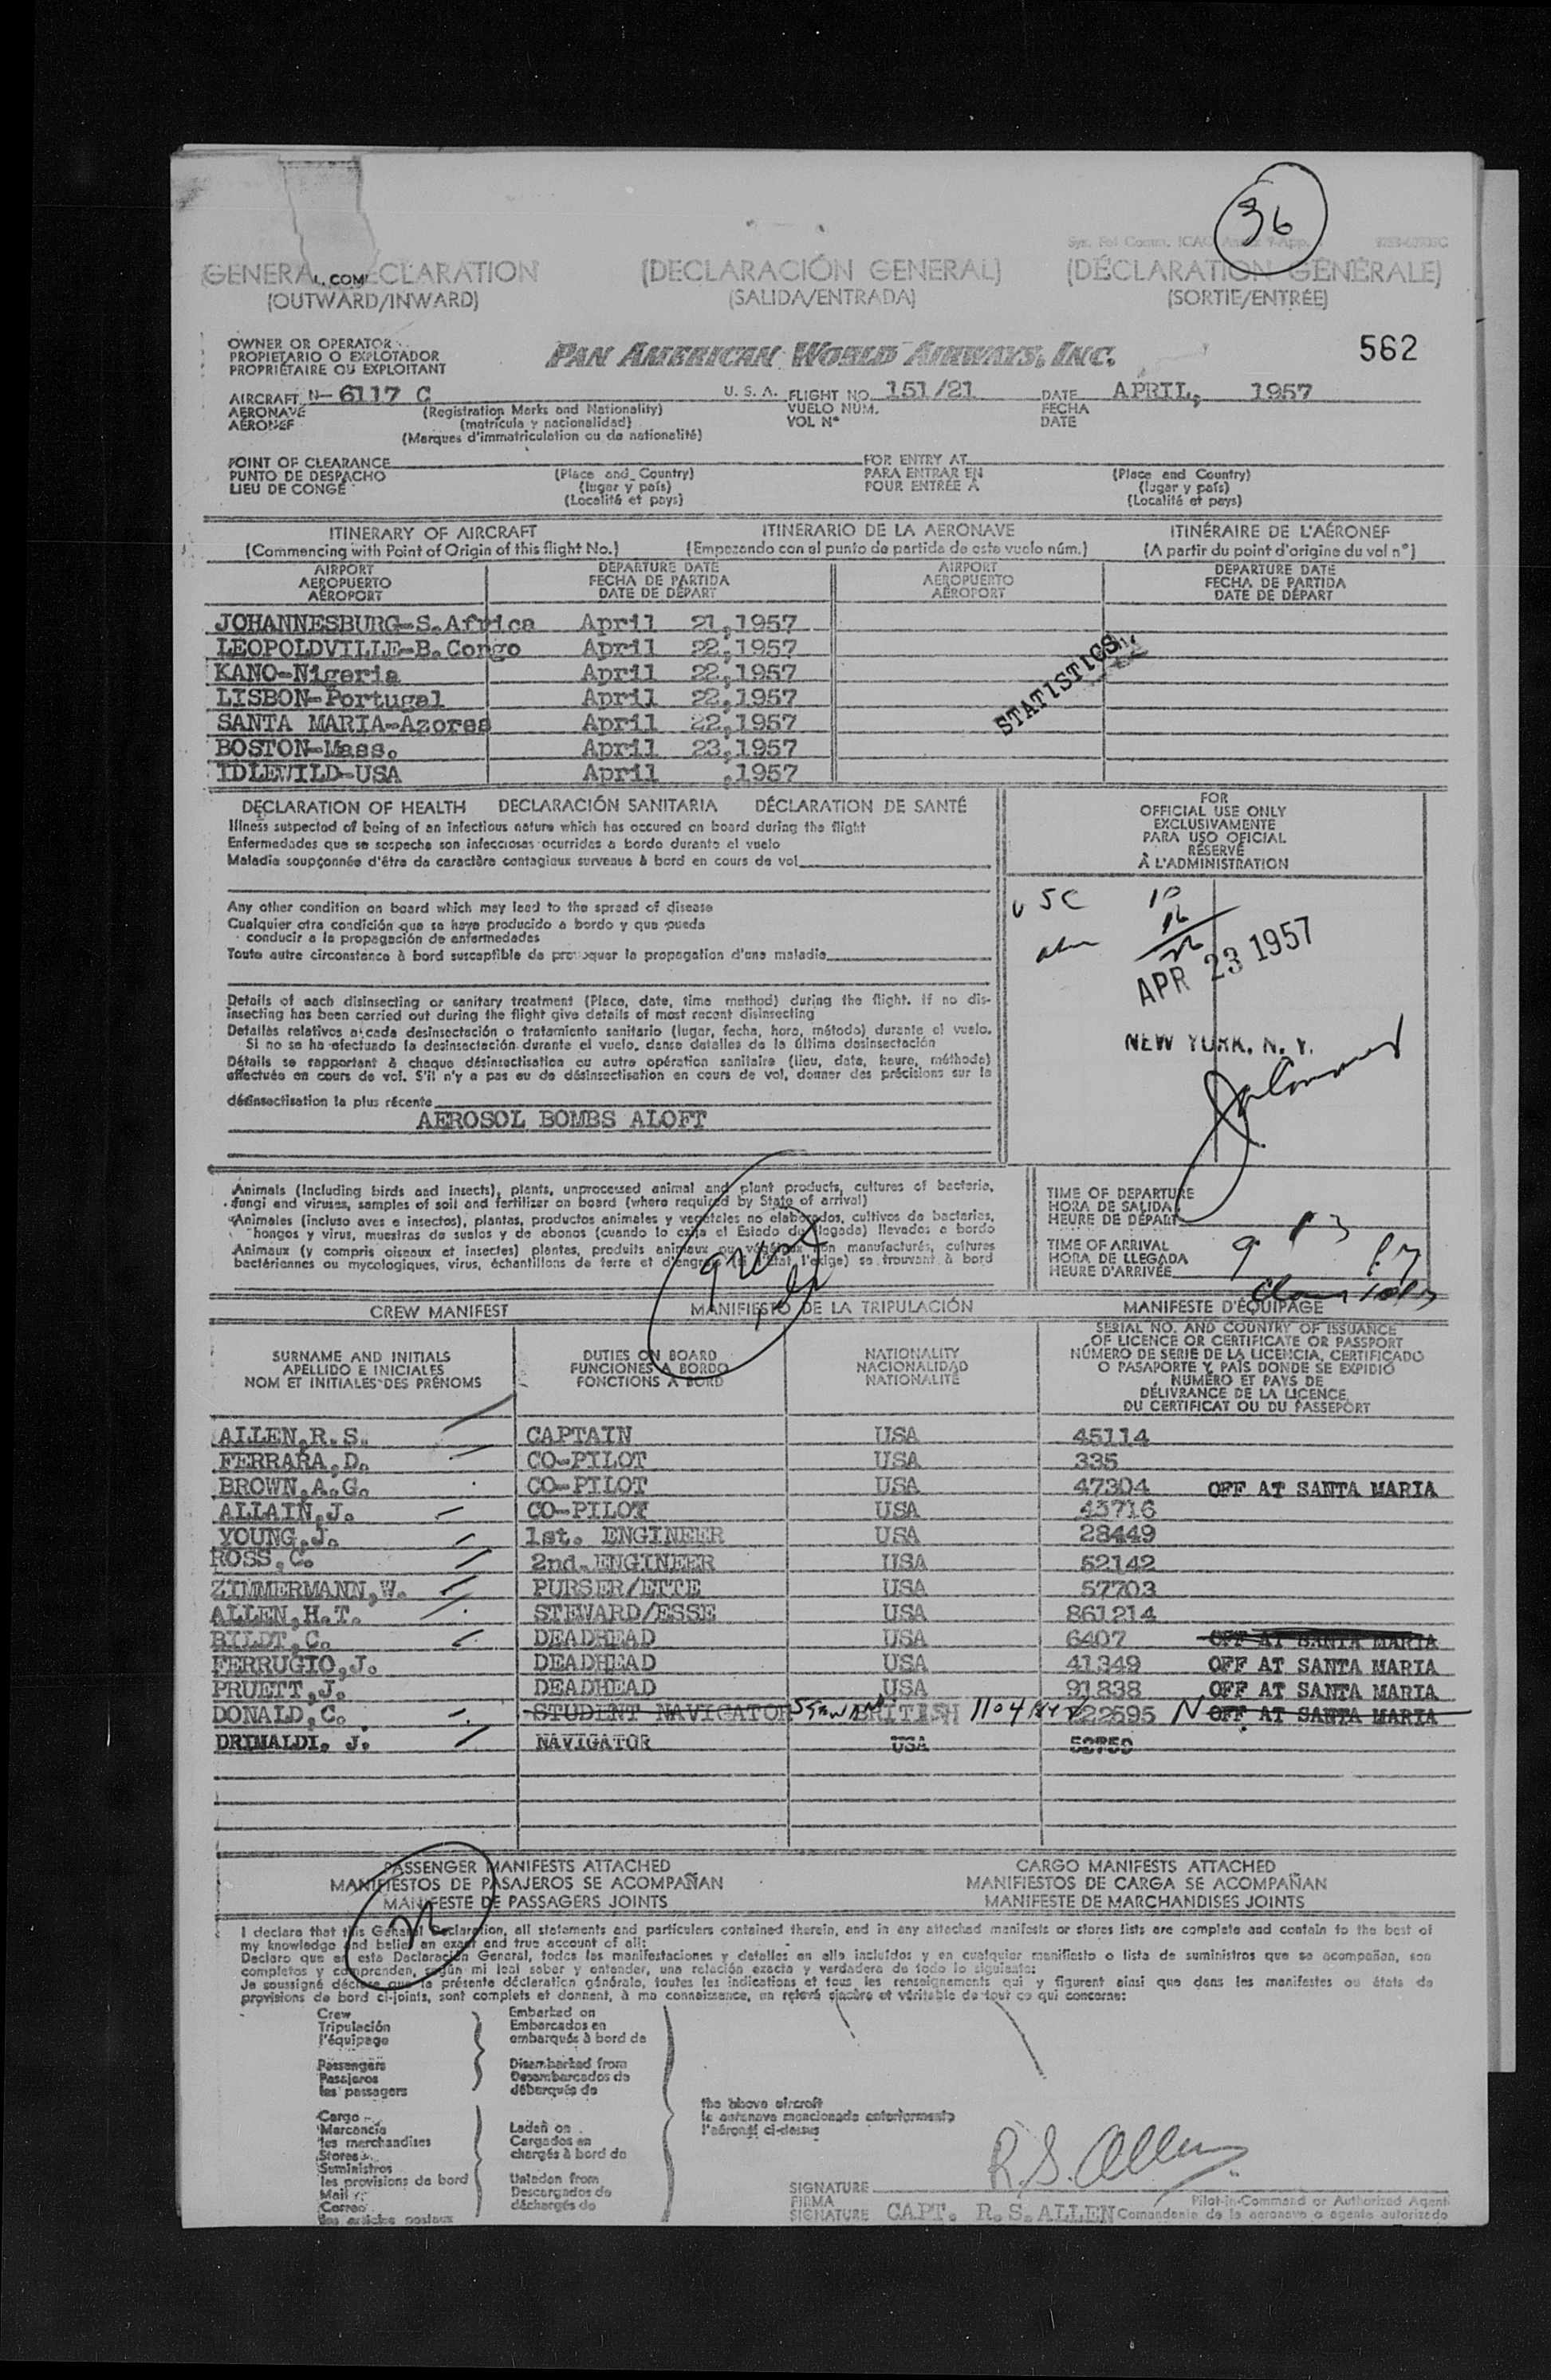 36
GENERAL COM ECLARATION
(OUTWARD/INWARD)
(DECLARACIÓN GENERAL)
(SALIDA/ENTRADA)
(DÉCLARATION GÉNÉRALE)
(SORTIE/ENTRÉE)
OWNER OR OPERATOR
PROPIETARIO O EXPLOTADOR
PROPRIÉTAIRE OU EXPLOITANT
PAN AMERICAN WORLD AIRWAYS, INC.
562
AIRCRAFT N-6117 C U. S. A. FLIGHT NO. 151/21 DATE APRIL, 1957
AERONAVE (Registration Marks and Nationality) VUELO NÚM. FECHA
AÉRONEF (matrícula y nacionalidad) VOL N° DATE
(Marques d'immatriculation ou de nationalité)
POINT OF CLEARANCE FOR ENTRY AT
PUNTO DE DESPACHO (Place and Country) PARA ENTRAR EN (Place and Country)
LIEU DE CONGÉ (lugar y país) POUR ENTRÉE À (lugar y país)
(Localité et pays) (Localité et pays)
ITINERARY OF AIRCRAFT ITINERARIO DE LA AERONAVE ITINÉRAIRE DE L'AÉRONEF
(Commencing with Point of Origin of this flight No.) (Empezando con el punto de partida de este vuelo núm.) (A partir du point d'origine du vol n°)
AIRPORT DEPARTURE DATE AIRPORT DEPARTURE DATE
AEROPUERTO FECHA DE PARTIDA AEROPUERTO FECHA DE PARTIDA
AÉROPORT DATE DE DÉPART AÉROPORT DATE DE DÉPART
JOHANNESBURG-S.Africa April 21,1957
LEOPOLDVILLE-B.Congo April 22,1957
KANO-Nigeria April 22,1957
LISBON-Portugal April 22,1957
SANTA MARIA-Azores April 22,1957
BOSTON-Mass. April 23,1957
IDLEWILD-USA April ,1957
STATISTICS
DECLARATION OF HEALTH DECLARACIÓN SANITARIA DÉCLARATION DE SANTÉ
Illness suspected of being of an infectious nature which has occured on board during the flight
Enfermedades que se sospeche son infecciosas ocurridas a bordo durante el vuelo
Maladie soupçonnée d'être de caractère contagieux survenue à bord en cours de vol
Any other condition on board which may lead to the spread of disease
Cualquier otra condición que se haya producido a bordo y que pueda
conducir a la propagación de enfermedades
Toute autre circonstance à bord susceptible de provoquer la propagation d'une maladie
Details of each disinsecting or sanitary treatment (Place, date, time method) during the flight. If no dis-
insecting has been carried out during the flight give details of most recent disinsecting
Detalles relativos a cada desinsectación o tratamiento sanitario (lugar, fecha, hora, método) durante el vuelo.
Si no se ha efectuado la desinsectación durante el vuelo, danse detalles de la última desinsectación
Détails se rapportant à chaque désinsectisation ou autre opération sanitaire (lieu, date, heure, méthode)
effectuée en cours de vol. S'il n'y a pas eu de désinsectisation en cours de vol, donner des précisions sur la
désinsectisation la plus récente
AEROSOL BOMBS ALOFT
FOR
OFFICIAL USE ONLY
EXCLUSIVAMENTE
PARA USO OFICIAL
RÉSERVÉ
À L'ADMINISTRATION
USC 10
APR 23 1957
NEW YORK, N. Y.
Animals (including birds and insects), plants, unprocessed animal and plant products, cultures of bacteria,
fungi and viruses, samples of soil and fertilizer on board (where required by State of arrival)
Animales (incluso aves e insectos), plantas, productos animales y vegetales no elaborados, cultivos de bacterias,
hongos y virus, muestras de suelos y de abonos (cuando lo exija el Estado de llegada) llevados a bordo
Animaux (y compris oiseaux et insectes) plantes, produits animaux ou végétaux non manufacturés, cultures
bactériennes ou mycologiques, virus, échantillons de terre et d'engrais (si l'État l'exige) se trouvant à bord
TIME OF DEPARTURE
HORA DE SALIDA
HEURE DE DÉPART
TIME OF ARRIVAL
HORA DE LLEGADA
HEURE D'ARRIVÉE
CREW MANIFEST MANIFIESTO DE LA TRIPULACIÓN MANIFESTE D'ÉQUIPAGE
SURNAME AND INITIALS
APELLIDO E INICIALES
NOM ET INITIALES DES PRÉNOMS
DUTIES ON BOARD
FUNCIONES A BORDO
FONCTIONS À BORD
NATIONALITY
NACIONALIDAD
NATIONALITÉ
SERIAL NO. AND COUNTRY OF ISSUANCE
OF LICENCE OR CERTIFICATE OR PASSPORT
NÚMERO DE SERIE DE LA LICENCIA, CERTIFICADO
O PASAPORTE Y PAÍS DONDE SE EXPIDIÓ
NUMÉRO ET PAYS DE
DÉLIVRANCE DE LA LICENCE,
DU CERTIFICAT OU DU PASSEPORT
ALLEN,R.S. CAPTAIN USA 45114
FERRARA,D. CO-PILOT USA 335
BROWN,A.G. CO-PILOT USA 47304 OFF AT SANTA MARIA
ALLAIN,J. CO-PILOT USA 43716
YOUNG,J. 1st. ENGINEER USA 28449
ROSS,C. 2nd.ENGINEER USA 52142
ZIMMERMANN,W. PURSER/ETTE USA 57703
ALLEN,H.T. STEWARD/ESSE USA 861214
BILDT,C. DEADHEAD USA 6407 OFF AT SANTA MARIA
FERRUGIO,J. DEADHEAD USA 41349 OFF AT SANTA MARIA
PRUETT,J. DEADHEAD USA 91838 OFF AT SANTA MARIA
DONALD,C. STUDENT NAVIGATOR BRITISH 22595 N OFF AT SANTA MARIA
DRIMALDI. J. NAVIGATOR USA 52759
PASSENGER MANIFESTS ATTACHED CARGO MANIFESTS ATTACHED
MANIFIESTOS DE PASAJEROS SE ACOMPAÑAN MANIFIESTOS DE CARGA SE ACOMPAÑAN
MANIFESTE DE PASSAGERS JOINTS MANIFESTE DE MARCHANDISES JOINTS
I declare that this General Declaration, all statements and particulars contained therein, and in any attached manifests or stores lists are complete and contain to the best of
my knowledge and belief an exact and true account of all:
Declaro que en esta Declaración General, todos las manifestaciones y detalles en ella incluídos y en cualquier manifiesto o lista de suministros que se acompañan, son
completos y comprenden, según mi leal saber y entender, una relación exacta y verdadera de todo lo siguiente:
Je soussigné déclare que la présente déclaration générale, toutes les indications et tous les renseignements qui y figurent ainsi que dans les manifestes ou états de
provisions de bord ci-joints, sont complets et donnent, à ma connaissance, un relevé sincère et véritable de tout ce qui concerne:
Crew
Tripulación
l'équipage
Passengers
Pasajeros
les passagers
Cargo
Marcancía
les merchandises
Stores
Suministros
les provisions de bord
Mail
Correo
les articles postaux
Embarked on
Embarcados en
embarqués à bord de
Disembarked from
Desembarcados de
débarqués de
Laden on
Cargados en
chargés à bord de
Unladen from
Descargados de
déchargés de
the above aircraft
la aeronave mencionada anteriormente
l'aéronef ci-dessus
R.S. Allen
SIGNATURE
FIRMA Pilot-in-Command or Authorized Agent
SIGNATURE CAPT. R.S.ALLEN Comandante de la aeronave o agente autorizado